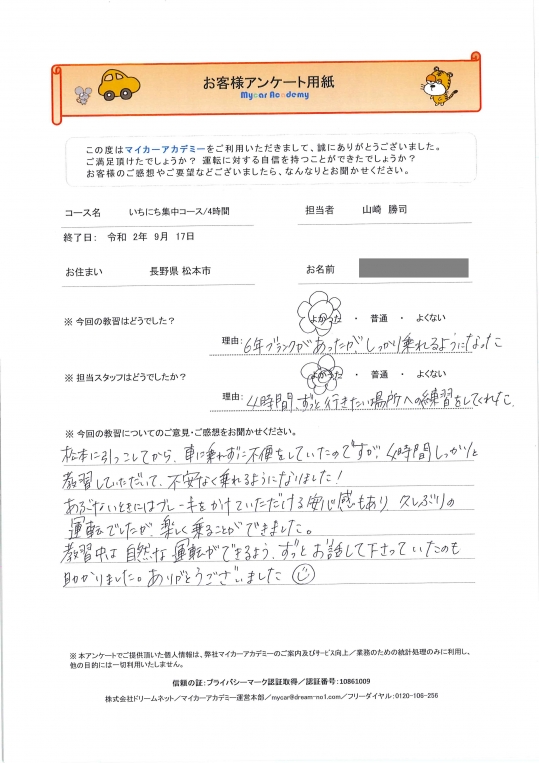 お客様アンケート用紙
Mycar Academy
この度はマイカーアカデミーをご利用いただきまして、誠にありがとうございました。
ご満足頂けたでしょうか？ 運転に対する自信を持つことができたでしょうか？
お客様のご感想やご要望などございましたら、なんなりとお聞かせください。
コース名 いちにち集中コース/4時間 担当者 山崎 勝司
終了日： 令和 2年 9月 17日
お住まい 長野県 松本市 お名前
※ 今回の教習はどうでした？ よかった ・ 普通 ・ よくない
理由： 6年ブランクがあったが、しっかり乗れるようになった
※ 担当スタッフはどうでしたか？ よかった ・ 普通 ・ よくない
理由： 4時間、ずっと行きたい場所への練習をしてくれた。
※ 今回の教習についてのご意見・ご感想をお聞かせください。
松本に引っこしてから、車に乗れずに不便をしていたのですが、4時間しっかりと
教習していただいて、不安なく乗れるようになりました！
あぶないときにはブレーキをかけていただける安心感もあり、久しぶりの
運転でしたが、楽しく乗ることができました。
教習中は自然な運転ができるよう、ずっとお話して下さっていたのも
助かりました。ありがとうございました
※ 本アンケートでご提供頂いた個人情報は、弊社マイカーアカデミーのご案内及びサービス向上／業務のための統計処理のみに利用し、
他の目的には一切利用いたしません。
信頼の証：プライバシーマーク認証取得／認証番号：10861009
株式会社ドリームネット／マイカーアカデミー運営本部／mycar@dream-no1.com／フリーダイヤル：0120-106-256